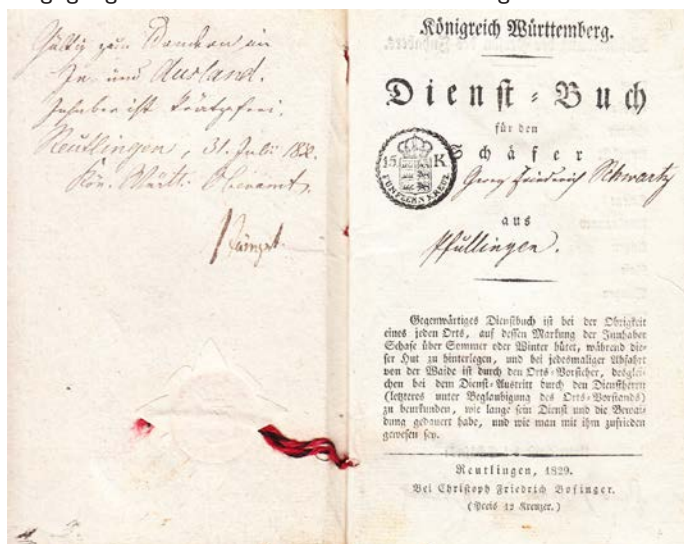 Gültig zum Wandern im
In- und Ausland.
Inhaber ist krätzfrei.
Reutlingen, 31. Juli
Kön. Württ. Oberamt.
Königreich Württemberg.
Dienst-Buch
für den
Schäfer
15 K
FÜNFZEHN KREUZ
Georg Friederich Schwartz
aus
Pfullingen.
Gegenwärtiges Dienstbuch ist bei der Obrigkeit
eines jeden Orts, auf dessen Markung der Innhaber
Schafe über Sommer oder Winter hütet, während die-
ser Hut zu hinterlegen, und bei jedesmaliger Abfahrt
von der Waide ist durch den Orts-Vorsteher, desglei-
chen bei dem Dienst-Austritt durch den Dienstherrn
(letzteres unter Beglaubigung des Orts-Vorstands)
zu beurkunden, wie lange sein Dienst und die Bewai-
dung gedauert habe, und wie man mit ihm zufrieden
gewesen sey.
Reutlingen, 1829.
Bei Christoph Friedrich Bofinger.
(Preis 12 Kreuzer.)